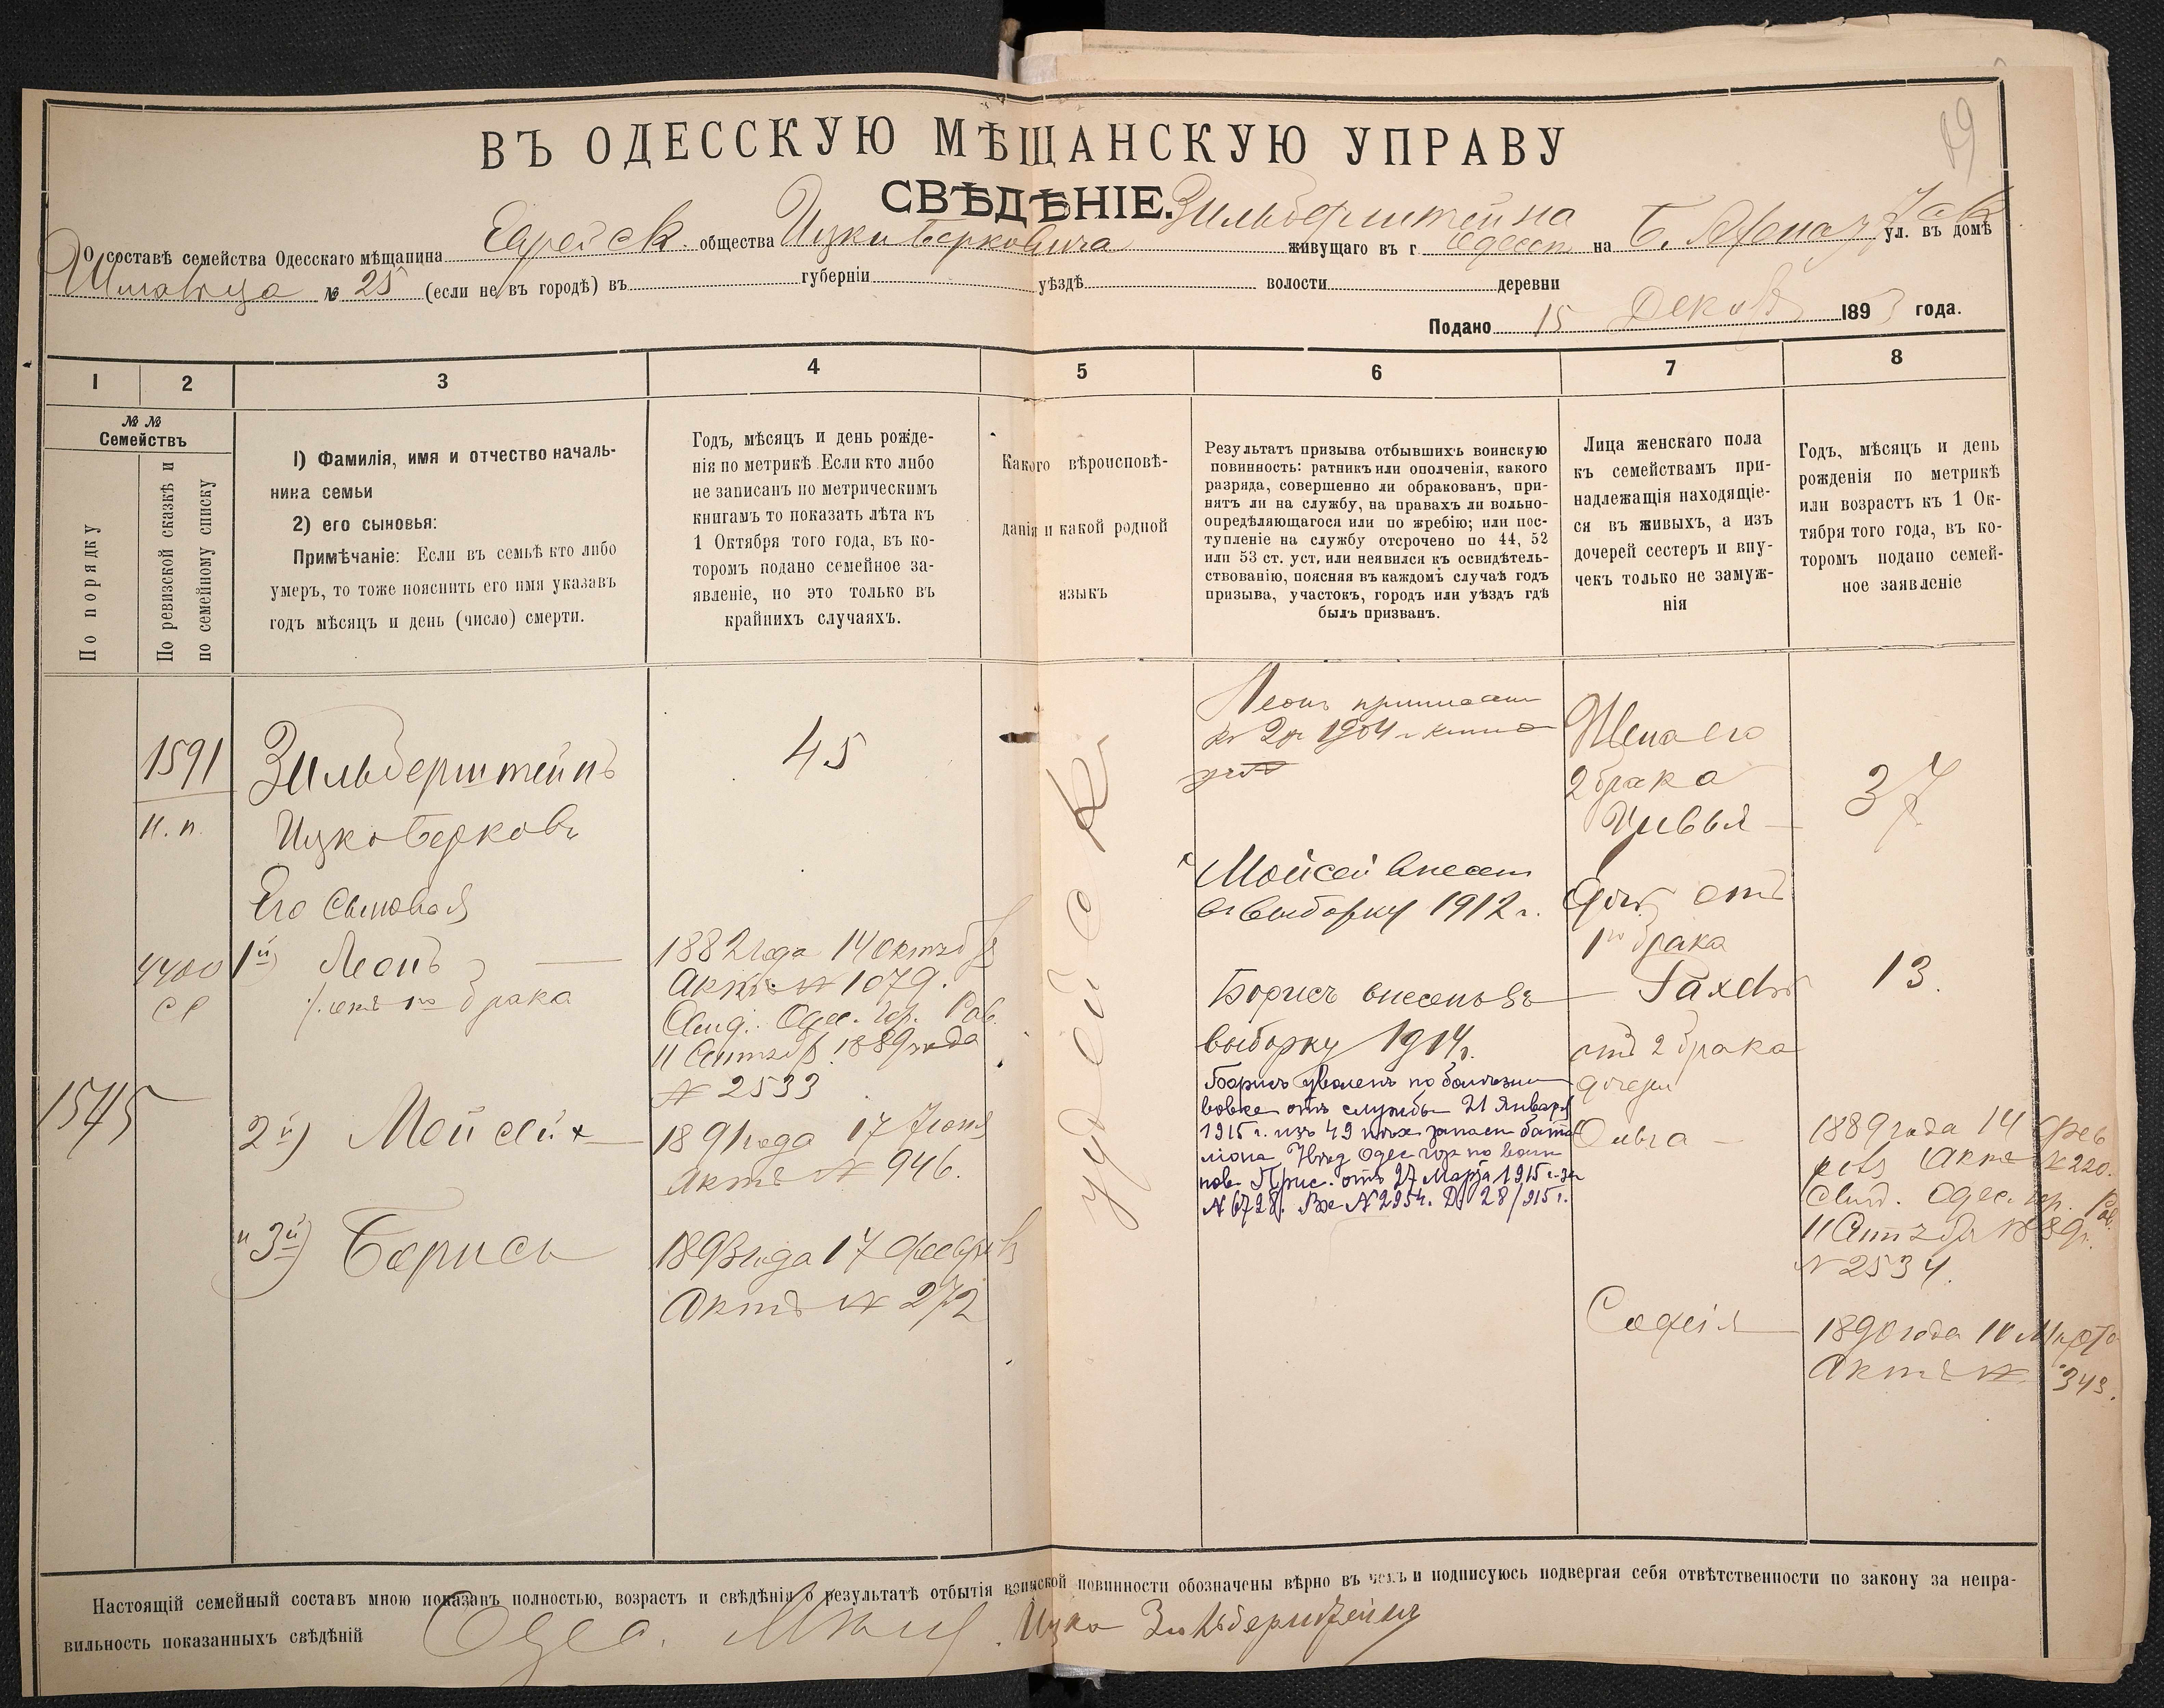 89
ВЪ ОДЕССКУЮ МѢЩАНСКУЮ УПРАВУ
СВѢДѢНІЕ.
О составѣ семейства Одесскаго мѣщанина Еврейск. общества Ицки Берковича Зильберштейна живущаго въ г. Одессѣ на Б. Арнаут ул. въ домѣ
№ 25 (если не въ городѣ) въ губерніи уѣздѣ волости деревни
Подано 15 Декаб 1893 года.
1 2 3 4 5 6 7 8
№ №
Семействъ
По порядку
По ревизской сказкѣ и
по семейному списку
1) Фамилія, имя и отчество началь-
ника семьи
2) его сыновья:
Примѣчаніе: Если въ семьѣ кто либо
умеръ, то тоже пояснить его имя указавъ
годъ мѣсяцъ и день (число) смерти.
Годъ, мѣсяцъ и день рожде-
нія по метрикѣ Если кто либо
не записанъ по метрическимъ
книгамъ то показать лѣта къ
1 Октября того года, въ ко-
торомъ подано семейное за-
явленіе, но это только въ
крайнихъ случаяхъ.
Какого вѣроисповѣ-
данія и какой родной
языкъ
Результатъ призыва отбывшихъ воинскую
повинность: ратникъ или ополченія, какого
разряда, совершенно ли обракованъ, при-
нятъ ли на службу, на правахъ ли вольно-
опредѣляющагося или по жребію; или пос-
тупленіе на службу отсрочено по 44, 52
или 53 ст. уст, или неявился къ освидѣтель-
ствованію, поясняя въ каждомъ случаѣ годъ
призыва, участокъ, городъ или уѣздъ гдѣ
былъ призванъ.
Лица женскаго пола
къ семействамъ при-
надлежащія находящіе-
ся въ живыхъ, а изъ
дочерей сестеръ и вну-
чекъ только не замуж-
нія
Годъ, мѣсяцъ и день
рожденія по метрикѣ
или возрастъ къ 1 Ок-
тября того года, въ ко-
торомъ подано семей-
ное заявленіе
1591
н. п.
4400
1545
Зильберштейнъ
Ицко Берковъ
Его Сыновья
1й) Леонъ
отъ 1го брака
2й) Мойсей
и 3й) Борисъ
45
1882 года 14 октября
Актъ № 1079.
Свид. Одес. гор. Рав.
11 Сентября 1889 года
№ 2533
1891 года 17 Іюня
Актъ № 946.
1893 года 17 февраля
Актъ № 272
іудейск
Леонъ приписанъ
къ 2 уч 1904 г.
Мойсей внесенъ
въ выборку 1912 г.
Борисъ внесенъ въ
выборку 1914 г.
Борисъ уволенъ по болѣзни
вовсе отъ службы 21 Января
1915 г. изъ 49 пѣх запасн батал
іона Увед Одес гор по воин
пов Прис. отъ 27 Марта 1915 г. за
№ 6728. Вх № 2954. Д. 28/915 г.
Жена его
2 брака
Цивья
Дочь отъ
1го брака
Рахель
отъ 2 брака
дочери
Ольга
Софія
37
13.
1889 года 14 Фев
раля Актъ № 220.
Свид. Одес. гор. Рав.
11 Сентября 1889 г.
№ 2534.
1890 года 10 Марта
Актъ № 343.
Настоящій семейный составъ мною показанъ полностью, возрастъ и свѣдѣнія о результатѣ отбытія воинской повинности обозначены вѣрно въ чемъ и подписуюсь подвергая себя отвѣтственности по закону за непра-
вильность показанныхъ свѣдѣній Одес. Мѣщ. Ицко Зильберштейнъ